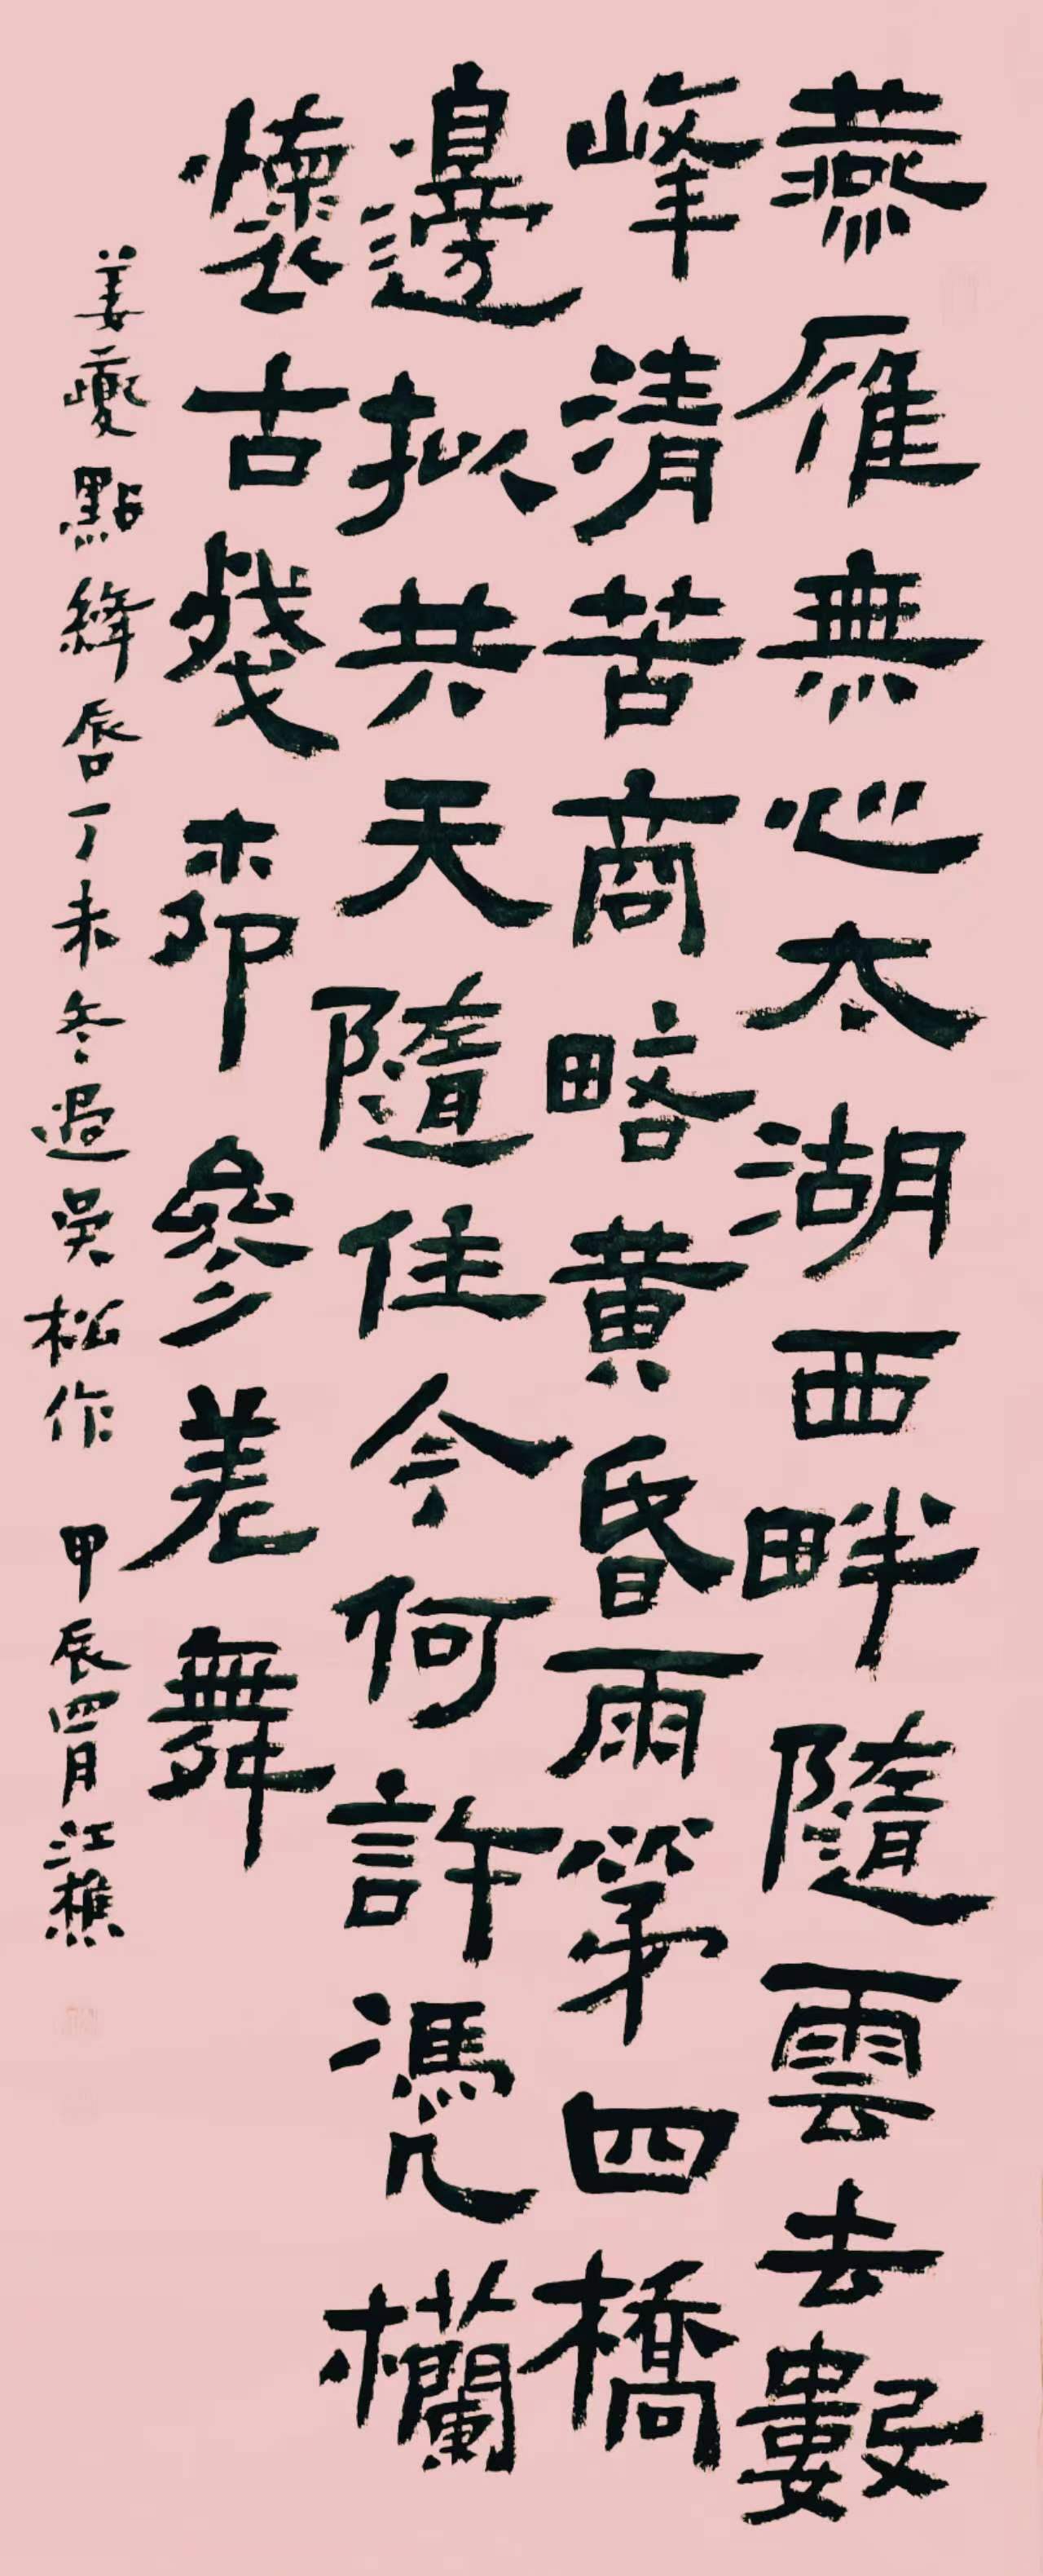 燕雁無心太湖西畔隨雲去數
峰清苦商略黄昏雨第四橋
邊拟共天隨住今何許憑欄
懷古殘柳參差舞
姜夔點絳唇丁未冬過吴松作 甲辰四月江樵